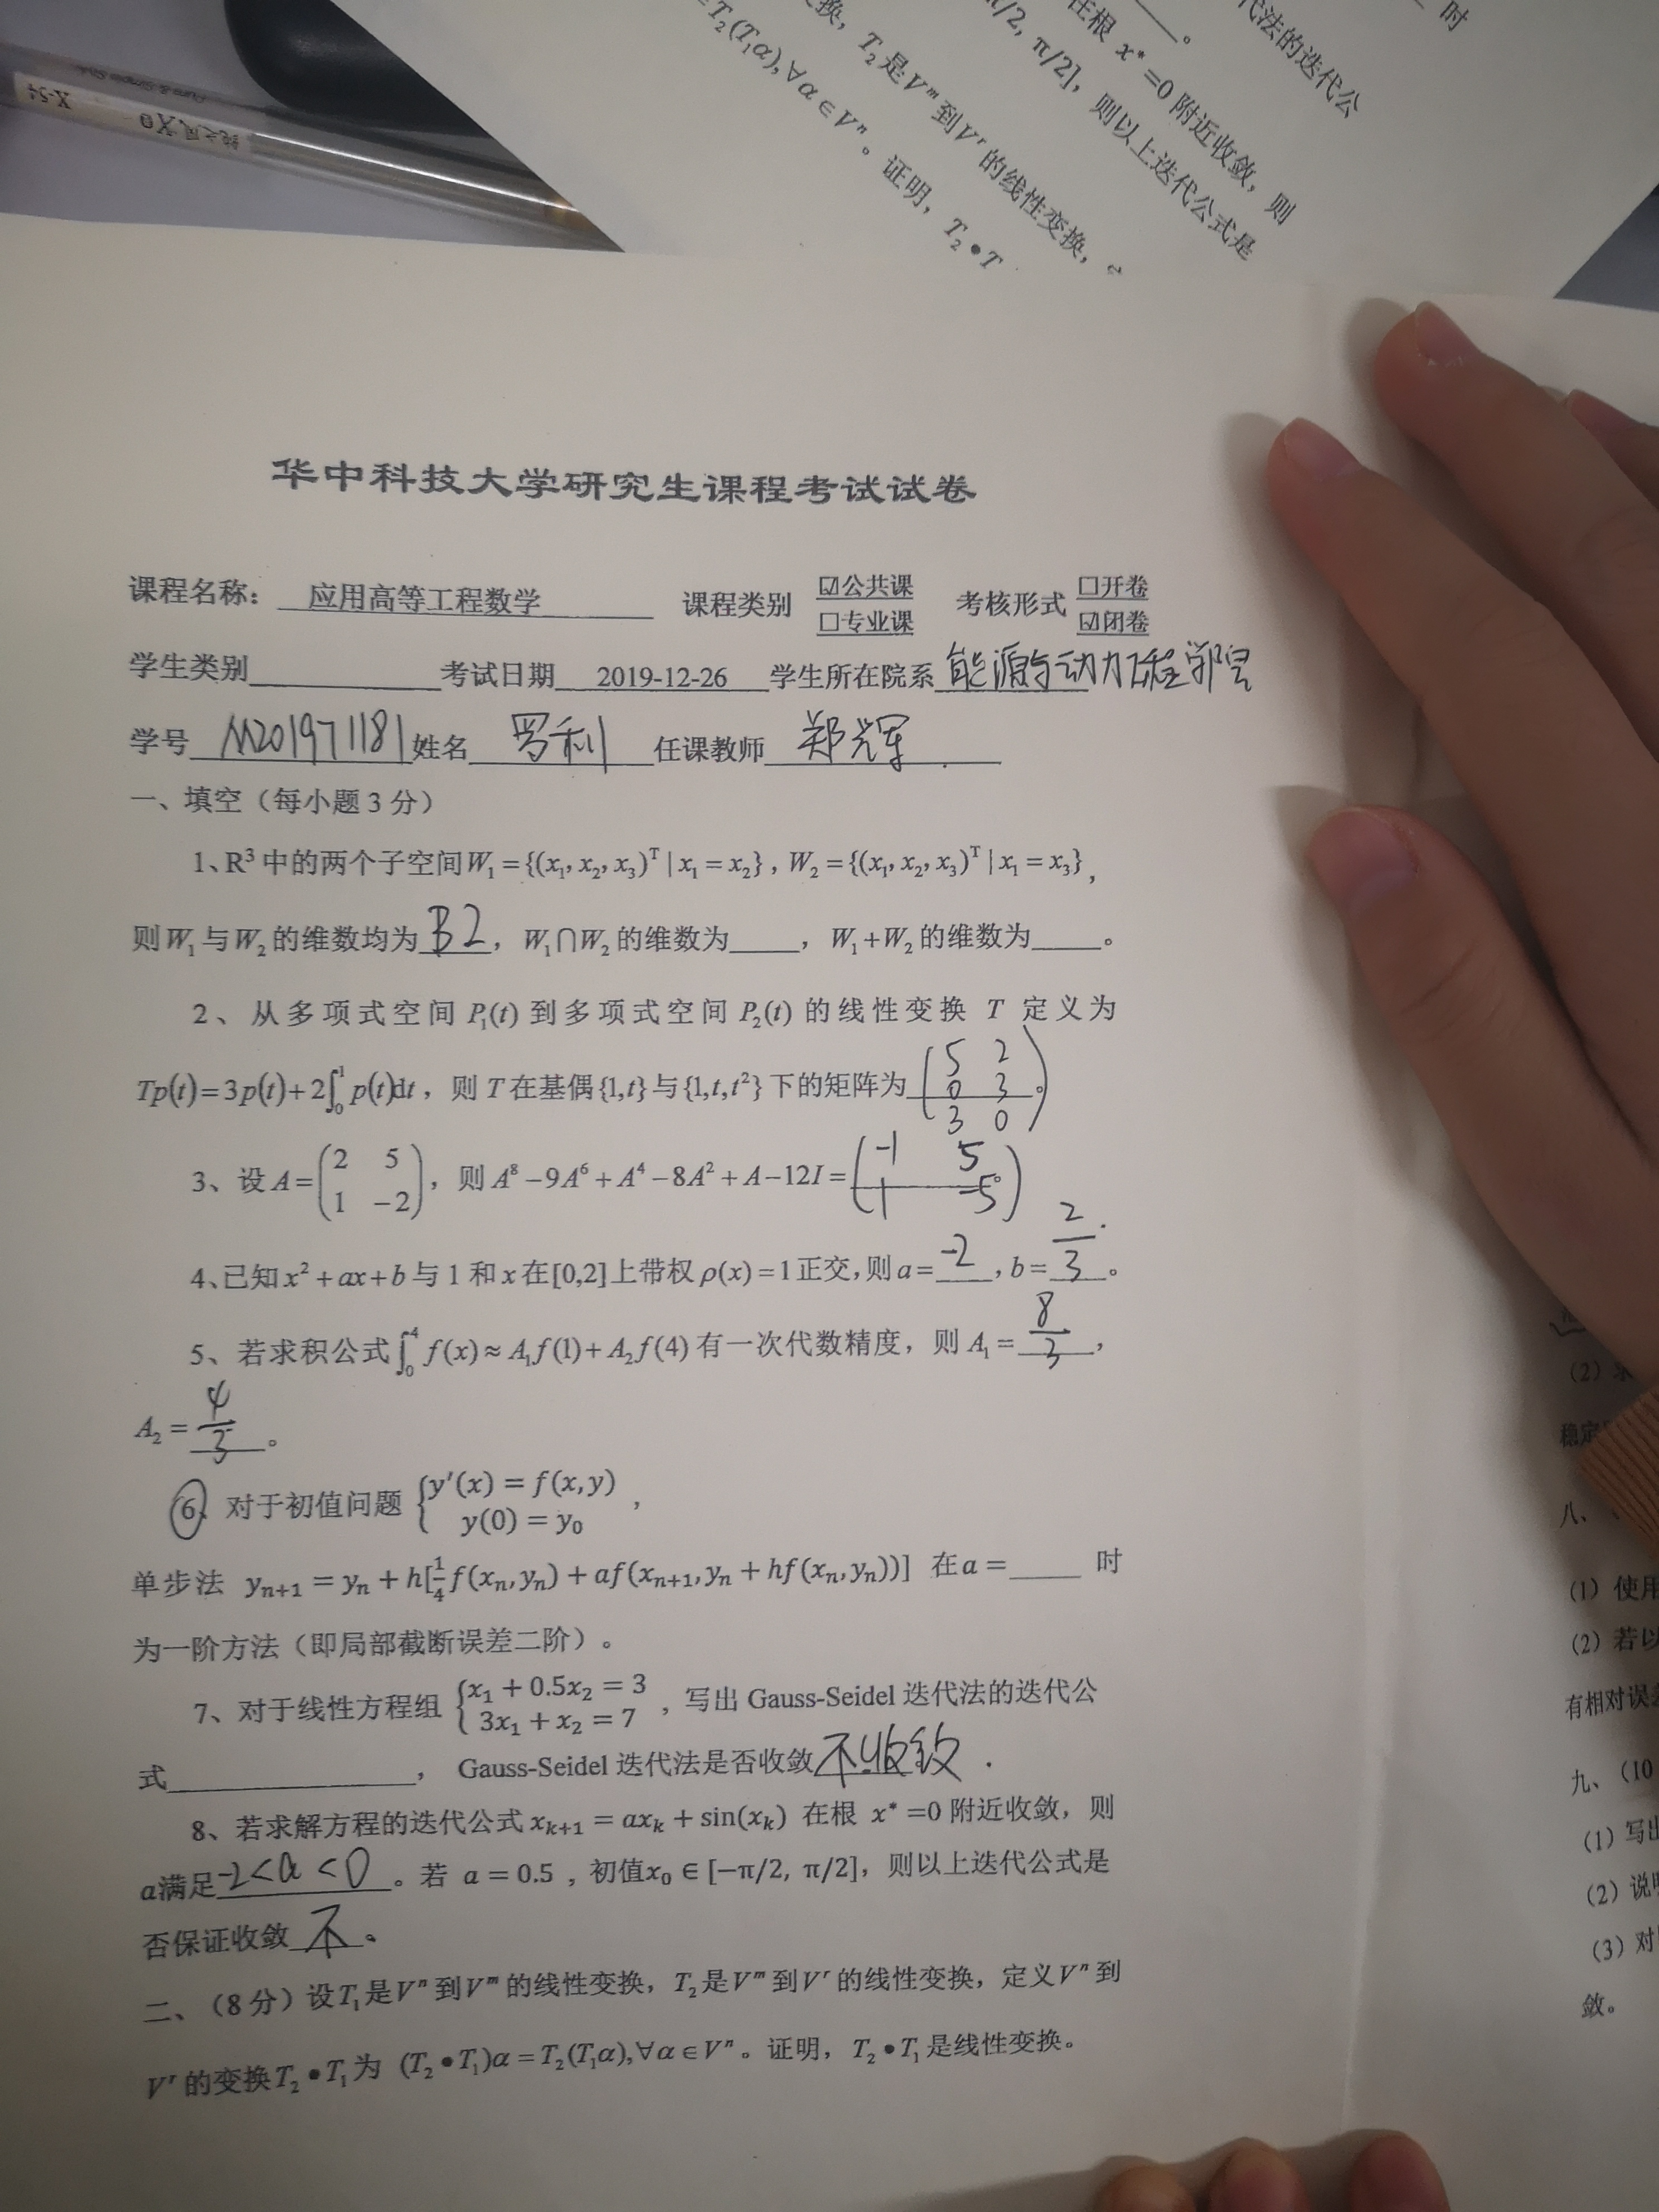 代法的迭代公
时
在根 x* =0 附近收敛，则
π/2, π/2]，则以上迭代公式是
变换，T₂是Vᵐ到Vʳ的线性变换，
=T₂(T₁α),∀α∈Vⁿ。证明，T₂•T
X-54
华中科技大学研究生课程考试试卷
课程名称： 应用高等工程数学 课程类别 ☑公共课 □专业课 考核形式 □开卷 ☑闭卷
学生类别______考试日期 2019-12-26 学生所在院系 能源与动力工程学院
学号 M201971181 姓名 罗利 任课教师 郑辉
一、填空（每小题 3 分）
1、R³ 中的两个子空间W₁ = {(x₁, x₂, x₃)ᵀ | x₁ = x₂} , W₂ = {(x₁, x₂, x₃)ᵀ | x₁ = x₃} ,
则W₁与W₂的维数均为 2 ，W₁∩W₂的维数为____，W₁+W₂的维数为____。
2、从多项式空间 P₁(t) 到多项式空间 P₂(t) 的线性变换 T 定义为
Tp(t)=3p(t)+2∫₀¹ p(t)dt，则 T 在基偶{1,t}与{1,t,t²}下的矩阵为 (5 2; 0 3; 3 0)。
3、设 A=(2 5; 1 -2)，则 A⁸ -9A⁶ + A⁴ -8A² + A -12I = (-1 5; 1 -5)。
4、已知 x² + ax + b 与 1 和 x 在[0,2]上带权 ρ(x) = 1正交，则 a= -2 , b= 2/3 。
5、若求积公式 ∫₀⁴ f(x) ≈ A₁f(1)+ A₂f(4) 有一次代数精度，则 A₁ = 8/3 ，
A₂ = 4/3 。
6、对于初值问题 {y′(x) = f(x,y) y(0) = y₀ ，
单步法 yₙ₊₁ = yₙ + h[1/4 f(xₙ,yₙ) + af(xₙ₊₁,yₙ + hf(xₙ,yₙ))] 在a =____ 时
为一阶方法（即局部截断误差二阶）。
7、对于线性方程组 {x₁ + 0.5x₂ = 3 3x₁ + x₂ = 7 ，写出 Gauss-Seidel 迭代法的迭代公
式______， Gauss-Seidel 迭代法是否收敛 不收敛 .
8、若求解方程的迭代公式xₖ₊₁ = axₖ + sin(xₖ) 在根 x* =0 附近收敛，则
a满足 -2<a<0 。若 a = 0.5 , 初值x₀ ∈ [−π/2, π/2]，则以上迭代公式是
否保证收敛 不 。
二、（8 分）设T₁是Vⁿ到Vᵐ的线性变换，T₂是Vᵐ到Vʳ的线性变换，定义Vⁿ到
Vʳ的变换T₂•T₁为 (T₂•T₁)α = T₂(T₁α),∀α∈Vⁿ。证明，T₂•T₁是线性变换。
（2）
稳定
八、
（1）使用
（2）若以
有相对误
九、（10
（1）写出
（2）说
（3）对
敛。